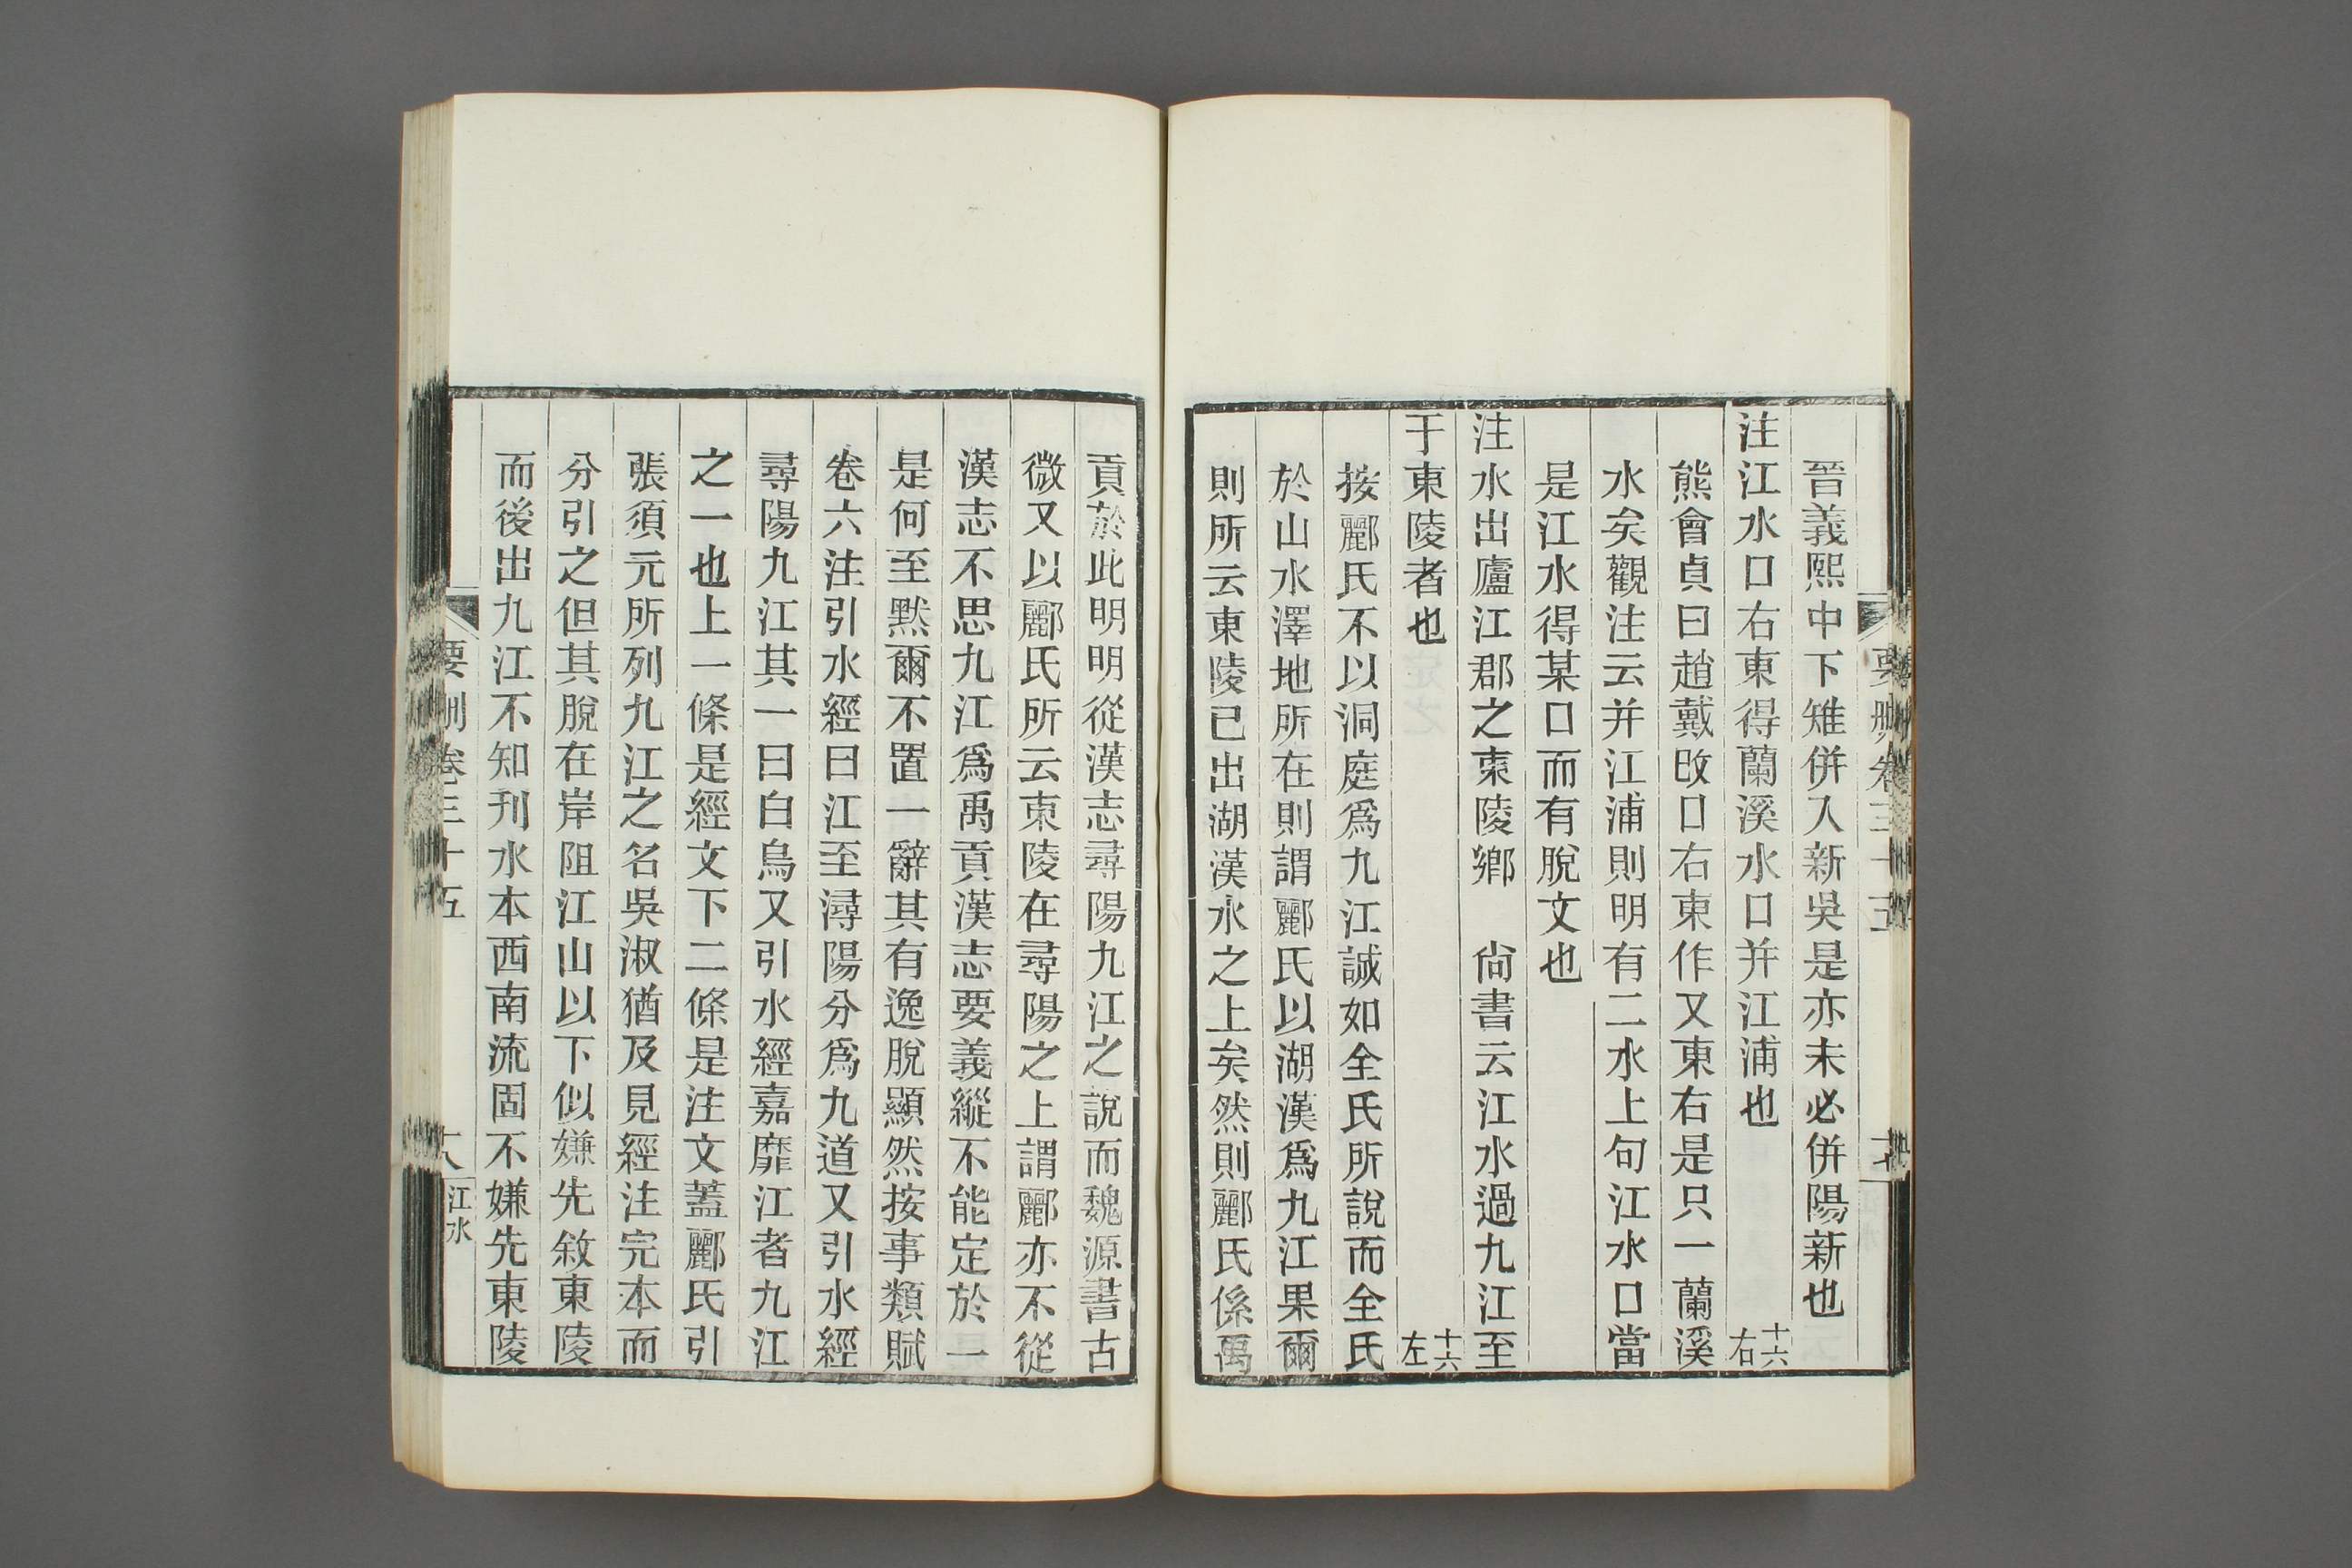 晉義熙中下雉併入新吳是亦未必併陽新也
注江水口右東得蘭溪水口并江浦也 十六右
熊會貞曰趙戴改口右東作又東右是只一蘭溪
水矣觀注云并江浦則明有二水上句江水口當
是江水得某口而有脫文也
注水出廬江郡之東陵鄉 尙書云江水過九江至
于東陵者也 十六左
按酈氏不以洞庭爲九江誠如全氏所說而全氏
於山水澤地所在則謂酈氏以湖漢爲九江果爾
則所云東陵已出湖漢水之上矣然則酈氏係禹
貢於此明明從漢志尋陽九江之說而魏源書古
微又以酈氏所云東陵在尋陽之上謂酈亦不從
漢志不思九江爲禹貢漢志要義縱不能定於一
是何至默爾不置一辭其有逸脫顯然按事類賦
卷六注引水經曰江至潯陽分爲九道又引水經
尋陽九江其一曰白烏又引水經嘉靡江者九江
之一也上一條是經文下二條是注文蓋酈氏引
張須元所列九江之名吳淑猶及見經注完本而
分引之但其脫在岸阻江山以下似嫌先敘東陵
而後出九江不知刊水本西南流固不嫌先東陵
要刪卷三十五 十八 江水